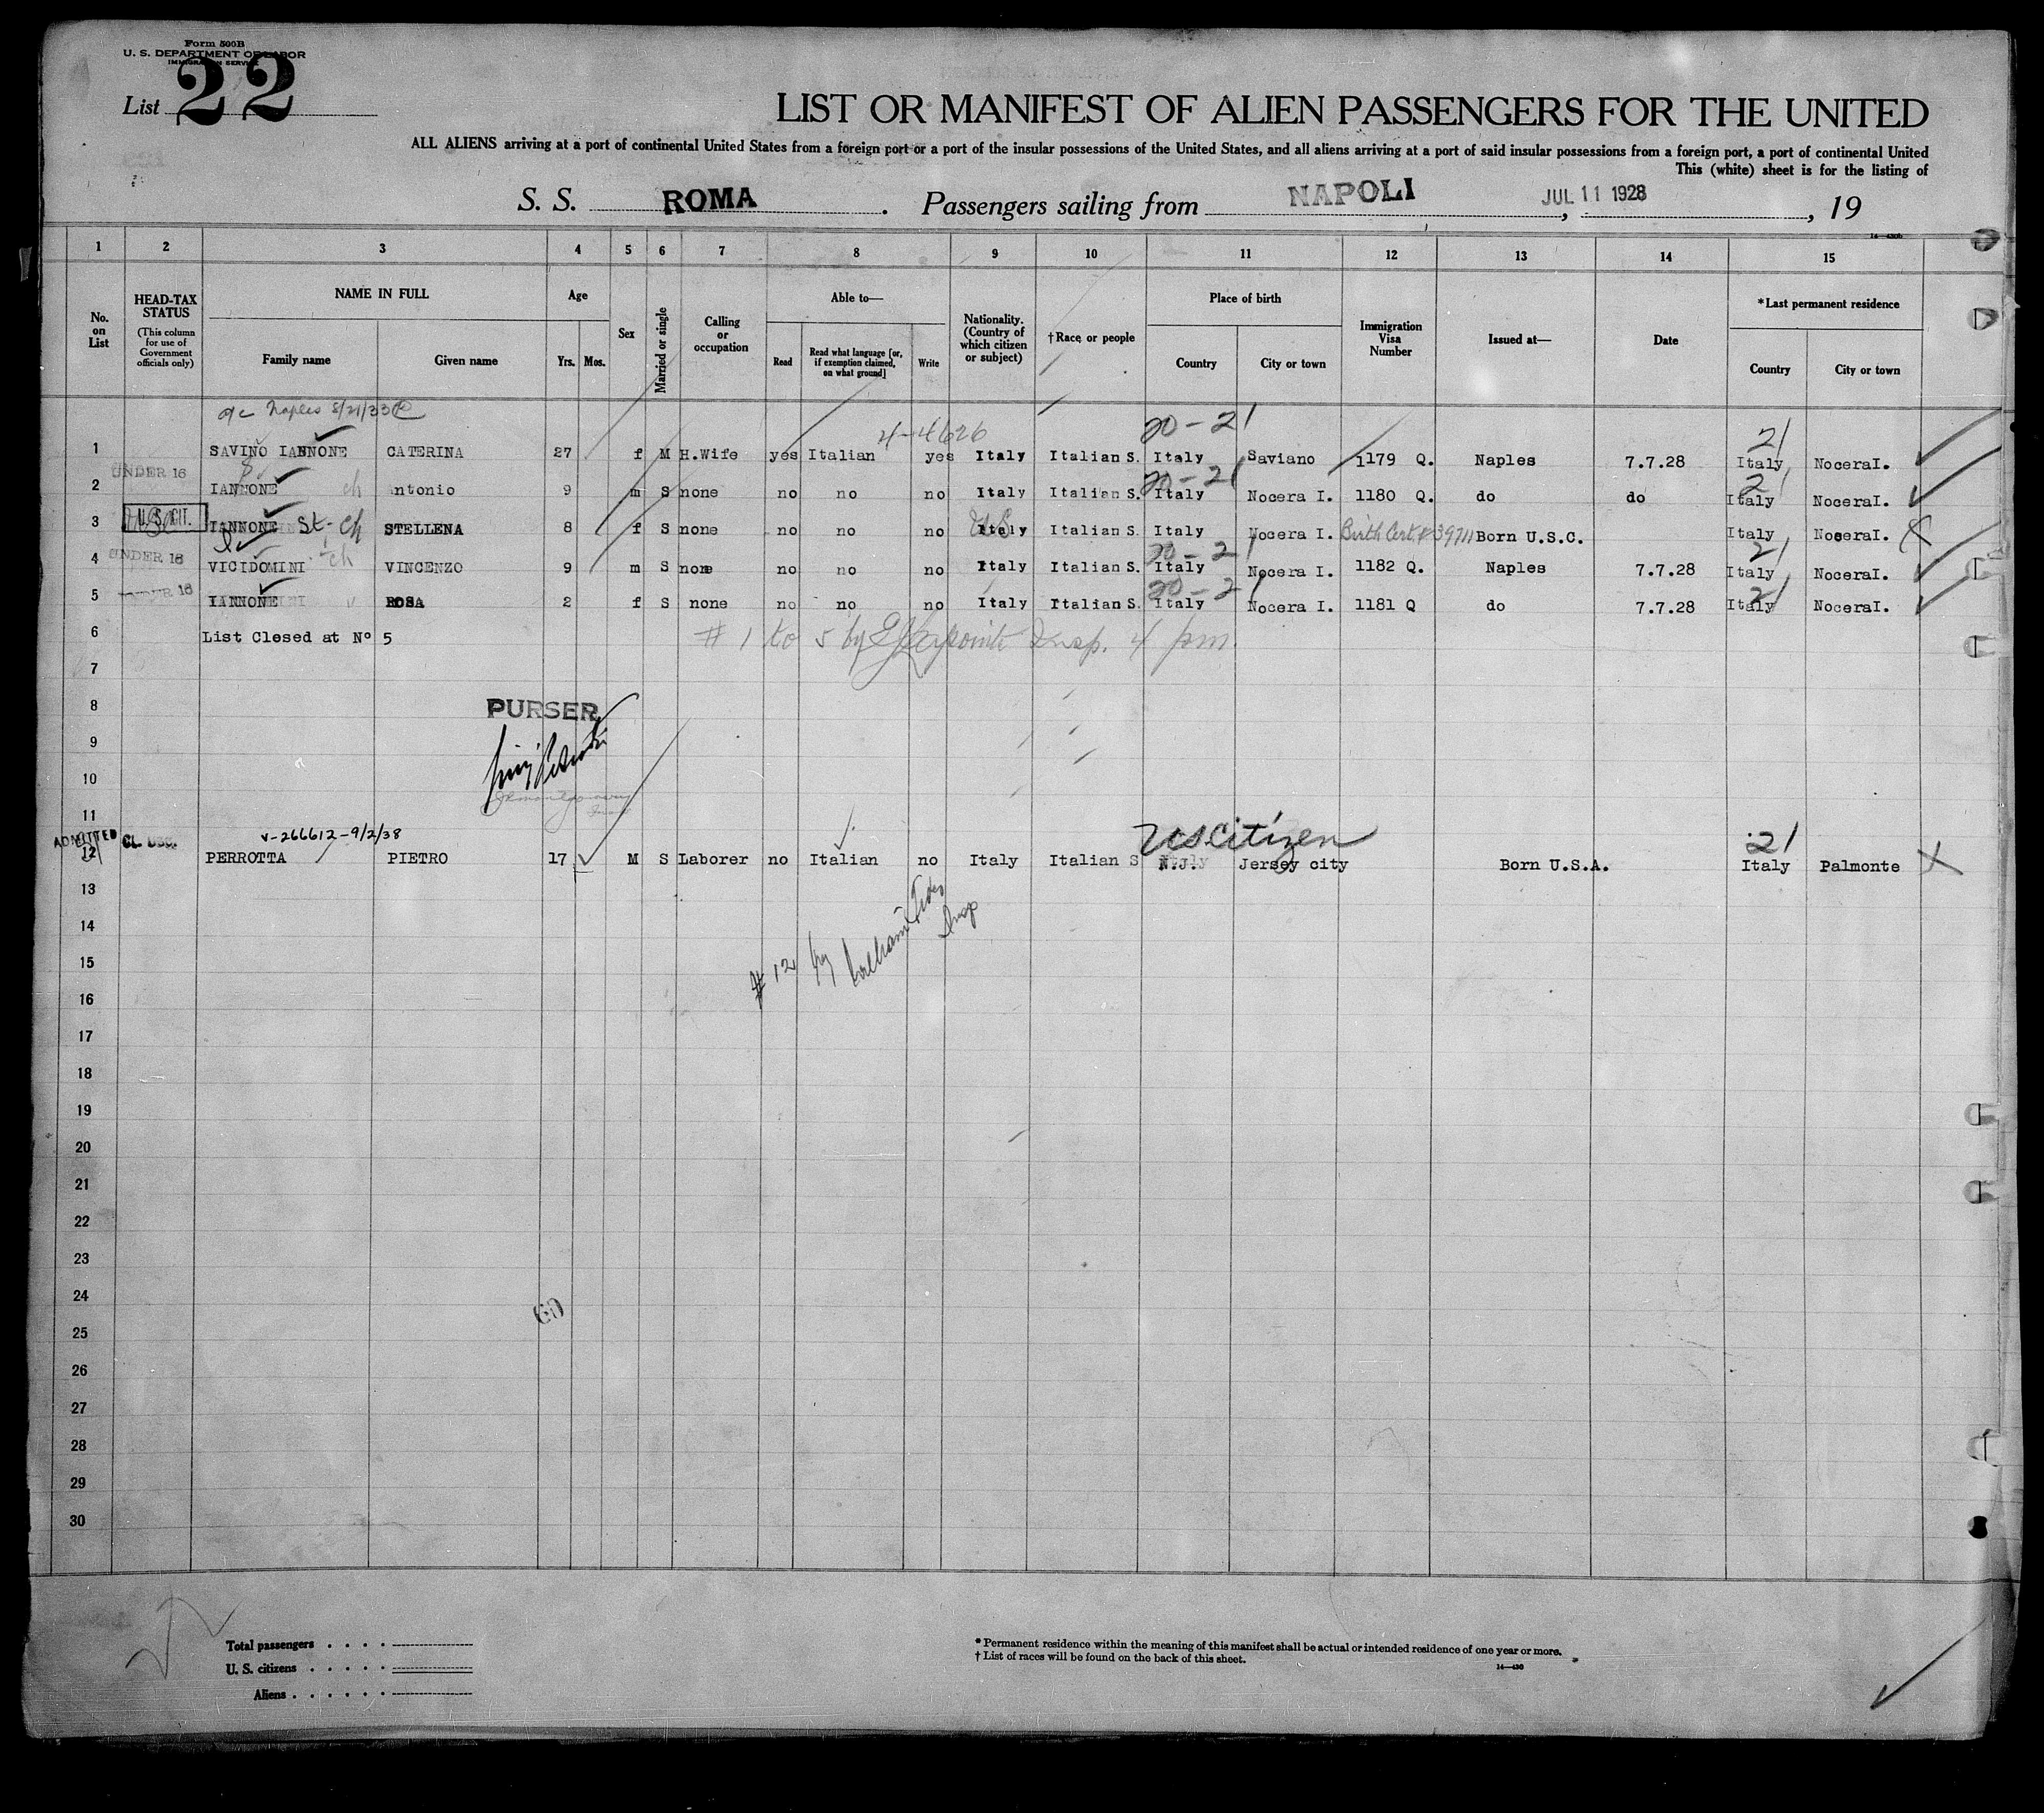 Form 500B
U. S. DEPARTMENT OF LABOR
IMMIGRATION SERVICE
List 22
LIST OR MANIFEST OF ALIEN PASSENGERS FOR THE UNITED
ALL ALIENS arriving at a port of continental United States from a foreign port or a port of the insular possessions of the United States, and all aliens arriving at a port of said insular possessions from a foreign port, a port of continental United
This (white) sheet is for the listing of
S. S. ROMA. Passengers sailing from NAPOLI, JUL 11 1928, 19
14—430b
1 2 3 4 5 6 7 8 9 10 11 12 13 14 15
No. on List
HEAD-TAX STATUS
(This column for use of Government officials only)
NAME IN FULL
Family name Given name
Age
Yrs. Mos.
Sex
Married or single
Calling or occupation
Able to—
Read Read what language [or, if exemption claimed, on what ground] Write
Nationality. (Country of which citizen or subject)
†Race or people
Place of birth
Country City or town
Immigration Visa Number
Issued at—
Date
*Last permanent residence
Country City or town
Naples 5/21/33
4-4626 20-21 21
1 SAVINO IANNONE CATERINA 27 f M H.Wife yes Italian yes Italy Italian S. Italy Saviano 1179 Q. Naples 7.7.28 Italy NoceraI.
UNDER 16 20-21 21
2 IANNONE ch Antonio 9 m S none no no no Italy Italian S. Italy Nocera I. 1180 Q. do do Italy NoceraI.
U.S. CIT. US
3 IANNONE St- ch STELLENA 8 f S none no no no Italy Italian S. Italy Nocera I. Birth Cert # 39711 Born U.S.C. Italy NoceraI.
UNDER 16 20-21 21
4 VICIDOMINI ch VINCENZO 9 m S none no no no Italy Italian S. Italy Nocera I. 1182 Q. Naples 7.7.28 Italy NoceraI.
UNDER 16 20-21 21
5 IANNONE ROSA 2 f S none no no no Italy Italian S. Italy Nocera I. 1181 Q do 7.7.28 Italy NoceraI.
6 List Clesed at Nº 5 # 1 to 5 by Insp. 4 pm.
7
8 PURSER
9
10
11
ADMITTED v-266612-9/2/38 US Citizen 21
12 PERROTTA PIETRO 17 M S Laborer no Italian no Italy Italian S N.J. Jersey city Born U.S.A. Italy Palmonte
13
# 12 by Insp
14
15
16
17
18
19
20
21
22
23
24
60
25
26
27
28
29
30
Total passengers . . . .
U. S. citizens . . . . .
Aliens . . . . . .
* Permanent residence within the meaning of this manifest shall be actual or intended residence of one year or more.
† List of races will be found on the back of this sheet.
14—430